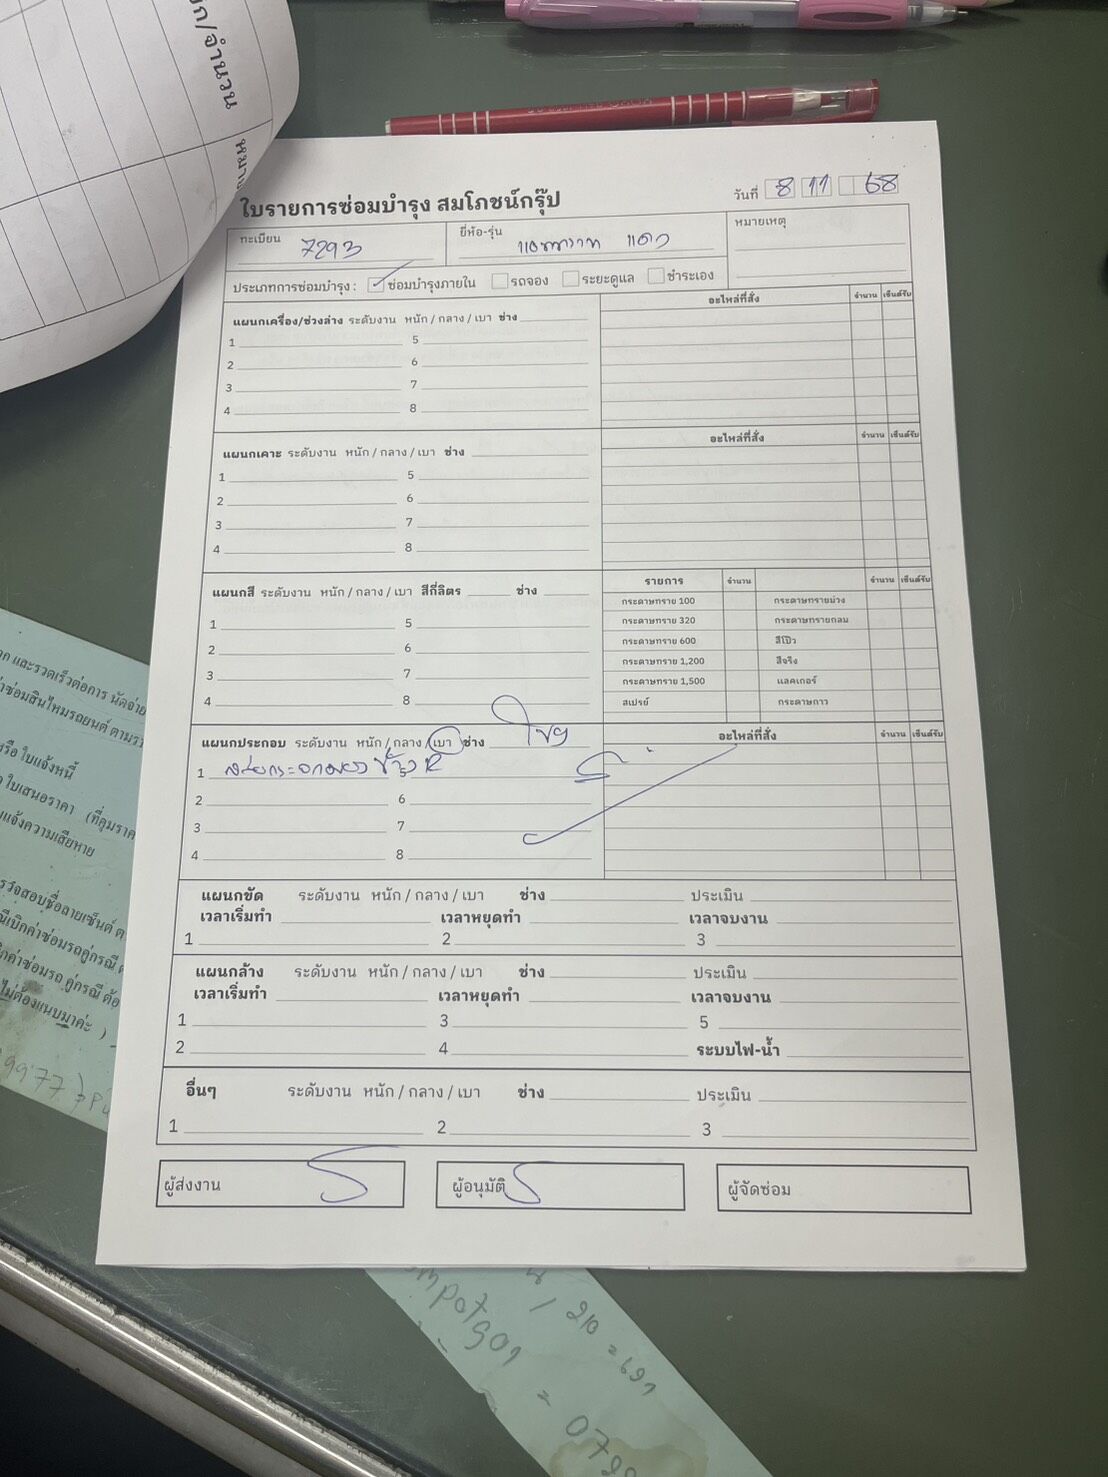 ก/จำนวน
หมาย
ใบรายการซ่อมบำรุง สมโภชน์กรุ๊ป
วันที่ 8 11 68
ทะเบียน 7293
ยี่ห้อ-รุ่น
หมายเหตุ
ประเภทการซ่อมบำรุง : ซ่อมบำรุงภายใน รถจอง ระยะดูแล ชำระเอง
แผนกเครื่อง/ช่วงล่าง ระดับงาน หนัก / กลาง / เบา ช่าง
อะไหล่ที่สั่ง จำนวน เซ็นต์รับ
1 5
2 6
3 7
4 8
แผนกเคาะ ระดับงาน หนัก / กลาง / เบา ช่าง
อะไหล่ที่สั่ง จำนวน เซ็นต์รับ
1 5
2 6
3 7
4 8
แผนกสี ระดับงาน หนัก / กลาง / เบา สีกี่ลิตร ช่าง
รายการ จำนวน จำนวน เซ็นต์รับ
กระดาษทราย 100 กระดาษทรายม่วง
กระดาษทราย 320 กระดาษทรายกลม
กระดาษทราย 600 สีโป๊ว
กระดาษทราย 1,200 สีจริง
กระดาษทราย 1,500 แลคเกอร์
สเปรย์ กระดาษกาว
1 5
2 6
3 7
4 8
แผนกประกอบ ระดับงาน หนัก / กลาง / เบา ช่าง
อะไหล่ที่สั่ง จำนวน เซ็นต์รับ
1 5
2 6
3 7
4 8
แผนกขัด ระดับงาน หนัก / กลาง / เบา ช่าง ประเมิน
เวลาเริ่มทำ เวลาหยุดทำ เวลาจบงาน
1 2 3
แผนกล้าง ระดับงาน หนัก / กลาง / เบา ช่าง ประเมิน
เวลาเริ่มทำ เวลาหยุดทำ เวลาจบงาน
1 3 5
2 4 ระบบไฟ-น้ำ
อื่นๆ ระดับงาน หนัก / กลาง / เบา ช่าง ประเมิน
1 2 3
ผู้ส่งงาน ผู้อนุมัติ ผู้จัดซ่อม
และรวดเร็วต่อการ นัดจ่าย
ค่าซ่อมสินไหมรถยนต์ ตามรา
หรือ ใบแจ้งหนี้
ใบเสนอราคา (ที่คุมราคา
แจ้งความเสียหาย
ตรวจสอบชื่อลายเซ็นต์
ณีเบิกค่าซ่อมรถคู่กรณี
กค่าซ่อมรถ คู่กรณี ต้อ
ไม่ต้องแนบมาค่ะ )
9977
/ 210 = 691